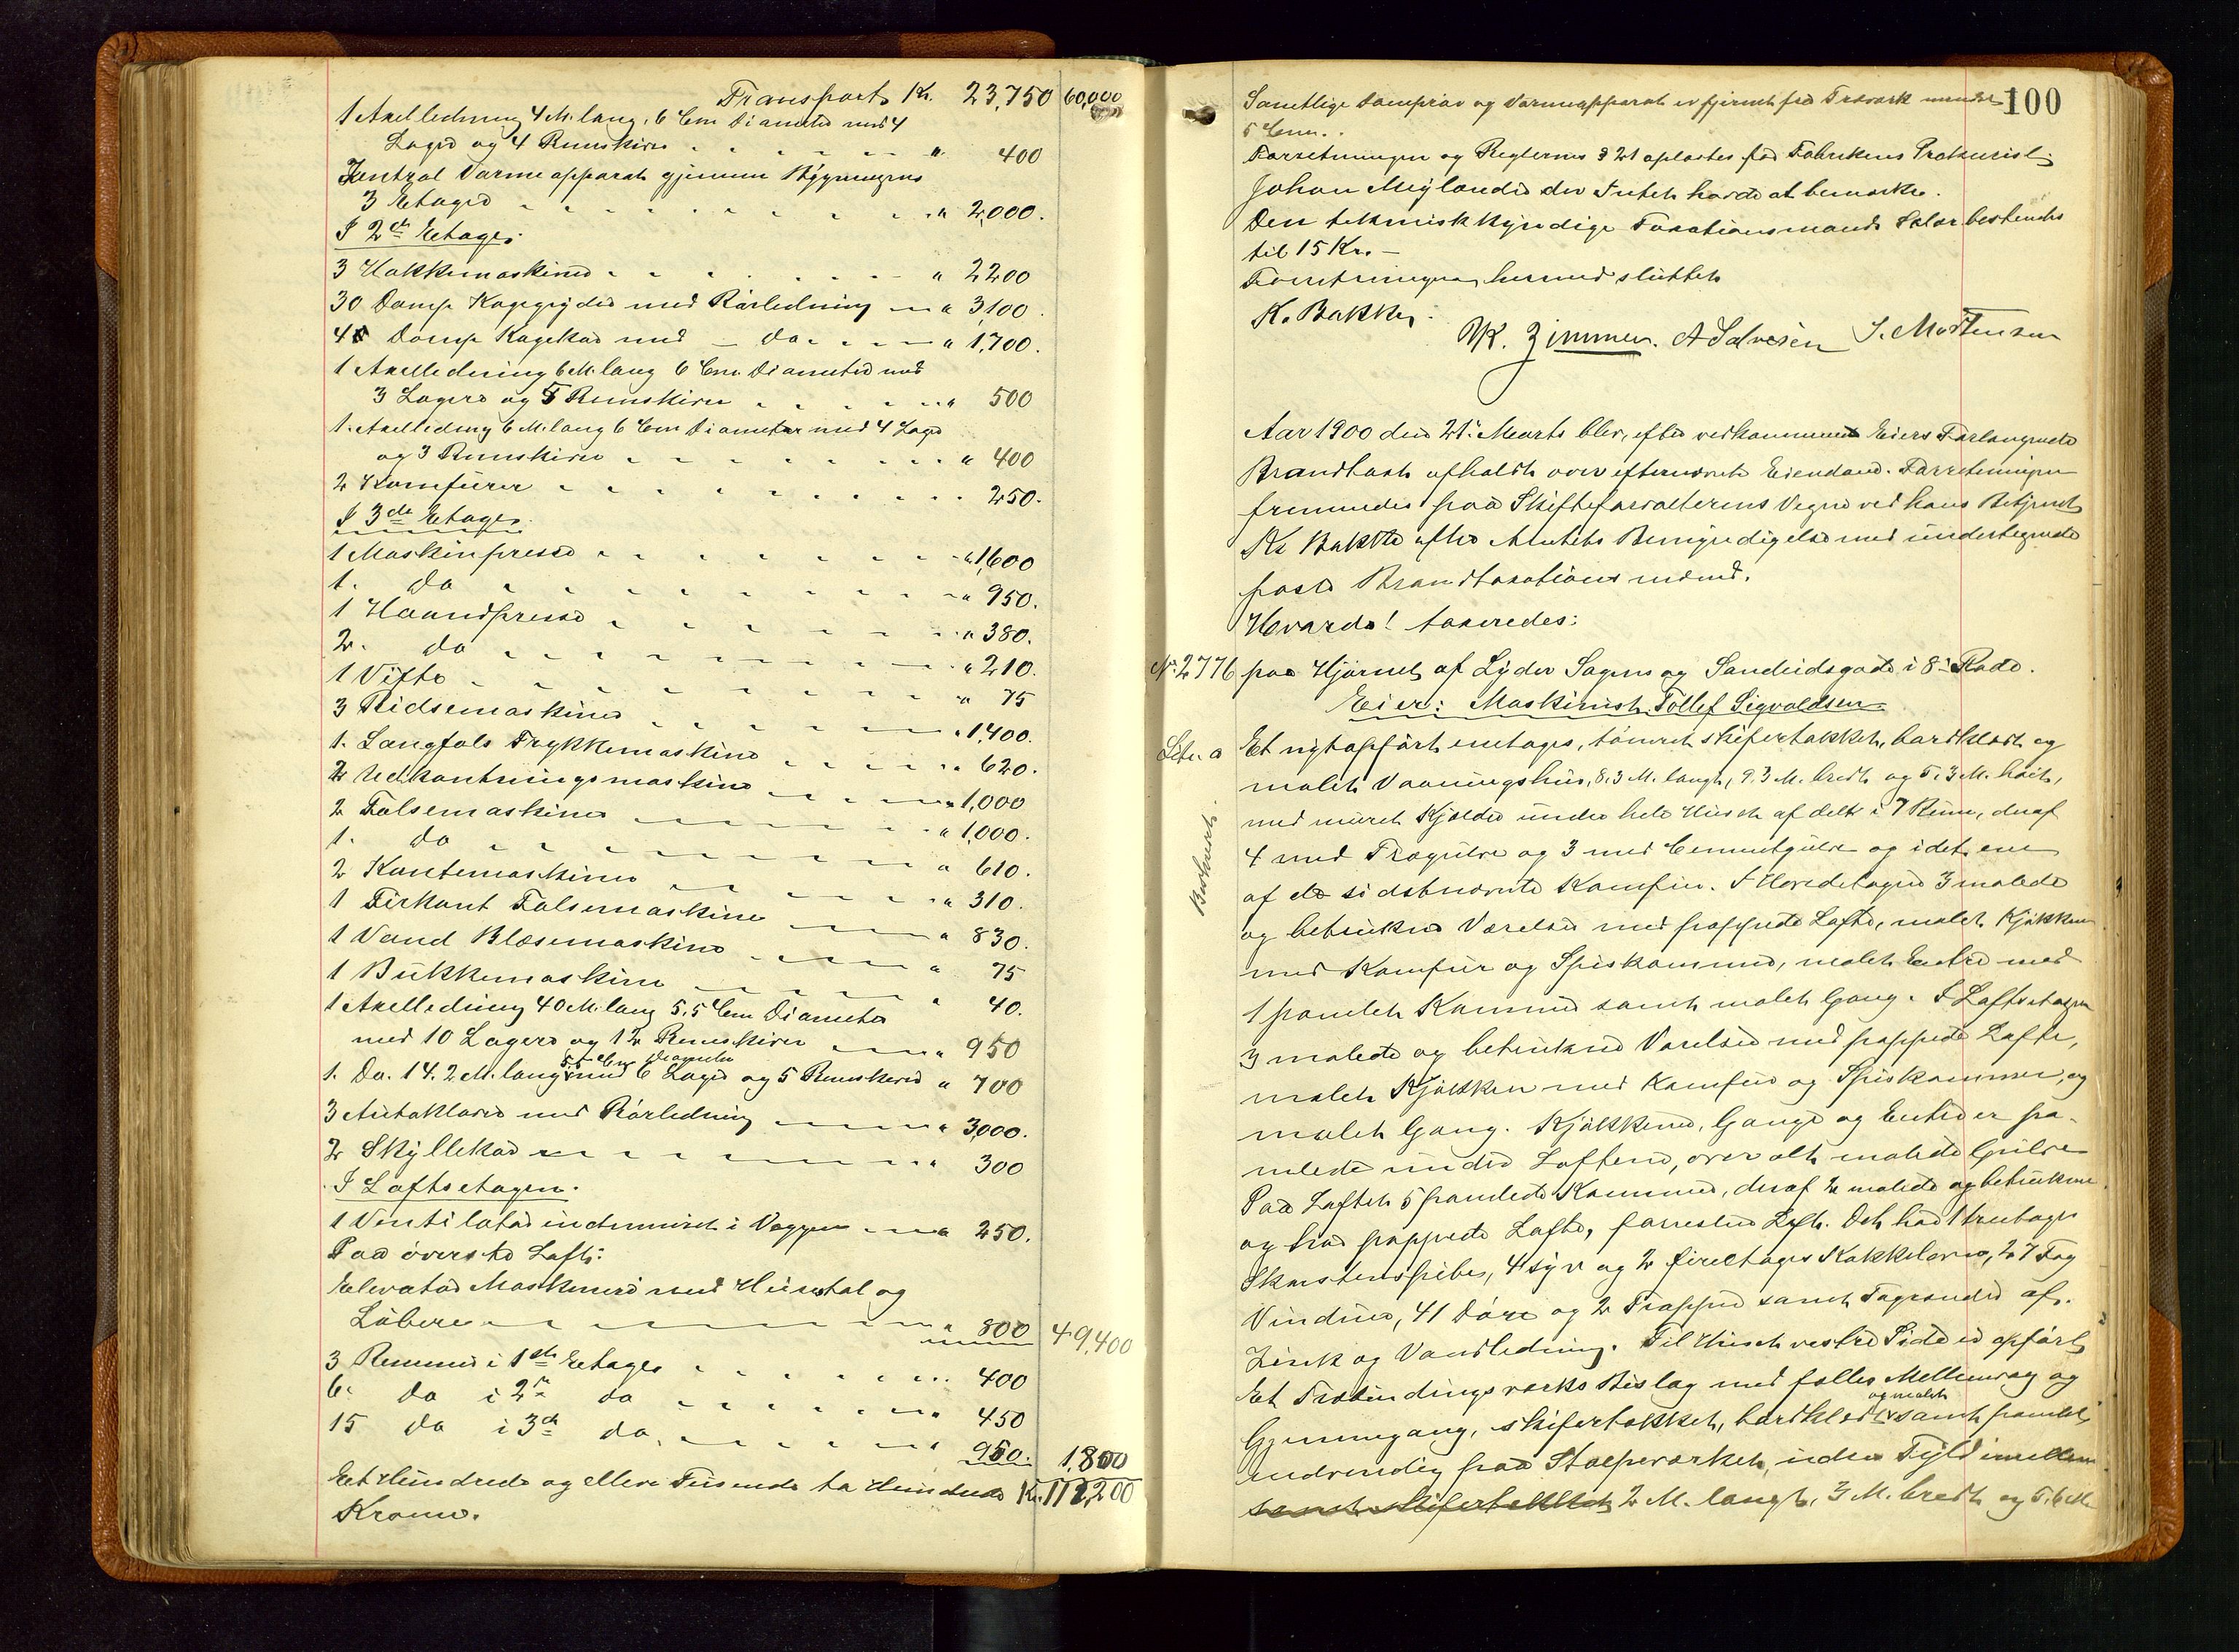 Transport Kr. 23,750 60,000
1 Axelledning 4 M. lang, 6 Cm Diameter med 4
Lager og 4 Remskiver " 400
Zentral Varmeapparat gjennem Bygningens
3 Etager " 2,000.
I 2den Etage:
3 Hakkemaskiner " 2200
30 Damp Kogegryder med Rørledning " 3,100.
4 Damp Kogekar med - Do. " 1,700.
1 Axelledning 6 M. lang 6 Cm. Diameter med
3 Lagere og 5 Remskiver " 500
1. Axelledning 6 M. lang 6 Cm Diameter med 4 Lager
og 3 Remskiver " 400
2 Komfurer 250.
I 3de Etage.
1 Maskinpresse " 1,600
1. do " 950.
1 Haandpresse " 380.
2. do " 210.
1 Vifte " 75
3 Ridsemaskiner " 1,400.
1. Langfals Trykkemaskine " 620.
2 Udkantningsmaskine " 1,000
2 Falsemaskiner " 1,000.
1. do " 610.
2 Kantemaskiner " 310.
1 Firkant Falsemaskine " 830.
1 Vand Blæsemaskine " 75
1 Bukkemaskine " 40.
1 Axelledning 40 M. lang 5,5 Cm Diameter
med 10 Lagere og 12 Remskiver " 950
5.5 Cm Diameter
1. Do. 14.2 M. lang med 6 Lager og 5 Remskiver " 700
3 Autoklaver med Rørledning " 3,000.
2 Skyllekar " 300
I Loftsetagen.
1 Ventilator indemuret i Væggen " 250.
Paa øverste Loft:
Elevator Maskineri med Heisestol og
Løbere " 800 49,400
3 Remmer i 1ste Etage 400
6. do i 2den do " 450
15 do i 3die do. " 950. 1,800
Et Hundrede og elleve Tusende to Hundrede Kr. 111,200
Kroner.
100
Samtlige Damprør og Varmeapparat er fjernet fra Træværk mindst
5 Cm..
Forretningen og Reglernes § 21 oplæstes for Fabrikens Prokurist
Johan Meylander der Intet havde at bemærke.
Den teknisk kyndige Taxationsmands Salær bestemtes
til 15 Kr. -
Forretningen hermed sluttet
K. Bakke.
K. Zimmer. A Salvesen S. Mortensen
Aar 1900 den 21. Marts blev, efter vedkommende Eiers Forlangende
Brandtaxt afholdt over efternævnte Eiendom. Forretningen
fremmedes paa Skifteforvalterens Vegne ved hans Betjent
K. Bakke efter Amtets Bemyndigelse med undertegnede
faste Brandtaxationsmænd.
Hvorda! taxeredes:
No. 2776 paa Hjørnet af Lyder Sagens og Sandeidsgade i 8. Rode.
Eier: Maskinist Tollef Sigvaldsen
Litr. a Et nyt opført enetages, tømret skifertækket, bordklædt og
malet Vaaningshus, 8,3 M. langt, 9,3 M. bredt og 5,3 M. høit,
med muret Kjælder under hele Huset afdelt i 7 Rum, deraf
4 med Trægulve og 3 med Cementgulve og i det ene
af de sidstnævnte Komfur. I Hovedetagen 3 malede
og betrukne Værelser med pappede Lofte, malet Kjøkken
med Komfur og Spiskammer, malet Entre med
1 panelet Kammer samt malet Gang. I Loftsetagen
3 malede og betrukne Værelser med pappede Lofte,
malet Kjøkken med Komfur og Spiskammer, og
malet Gang. Kjøkkener, Gange og Entreer pa-
nelede under Loftene, over alt malede Gulve
Paa Loftet 5 panelede Kammer, deraf 2 malede og betrukne
og har pappede Lofte, forresten Loft. Det har 1 treetages
Skorstenspibe, 4 syv og 2 fireetages Kakkelovne, 27 Fag
Vinduer, 41 Døre og 2 Trapper samt Tagrender af
Zink og Vandledning. Til Husets vestre Side er opført
Et Træbindingsværks Bislag med fælles Mellemvæg og
og malet
Gjennemgang, skifertækket, bordklædt samt panelet
indvendig paa Stolpeværket, uden Fyld imellem
samt skifertækket 2 M. langt, 3 M. bredt og 5,6 M